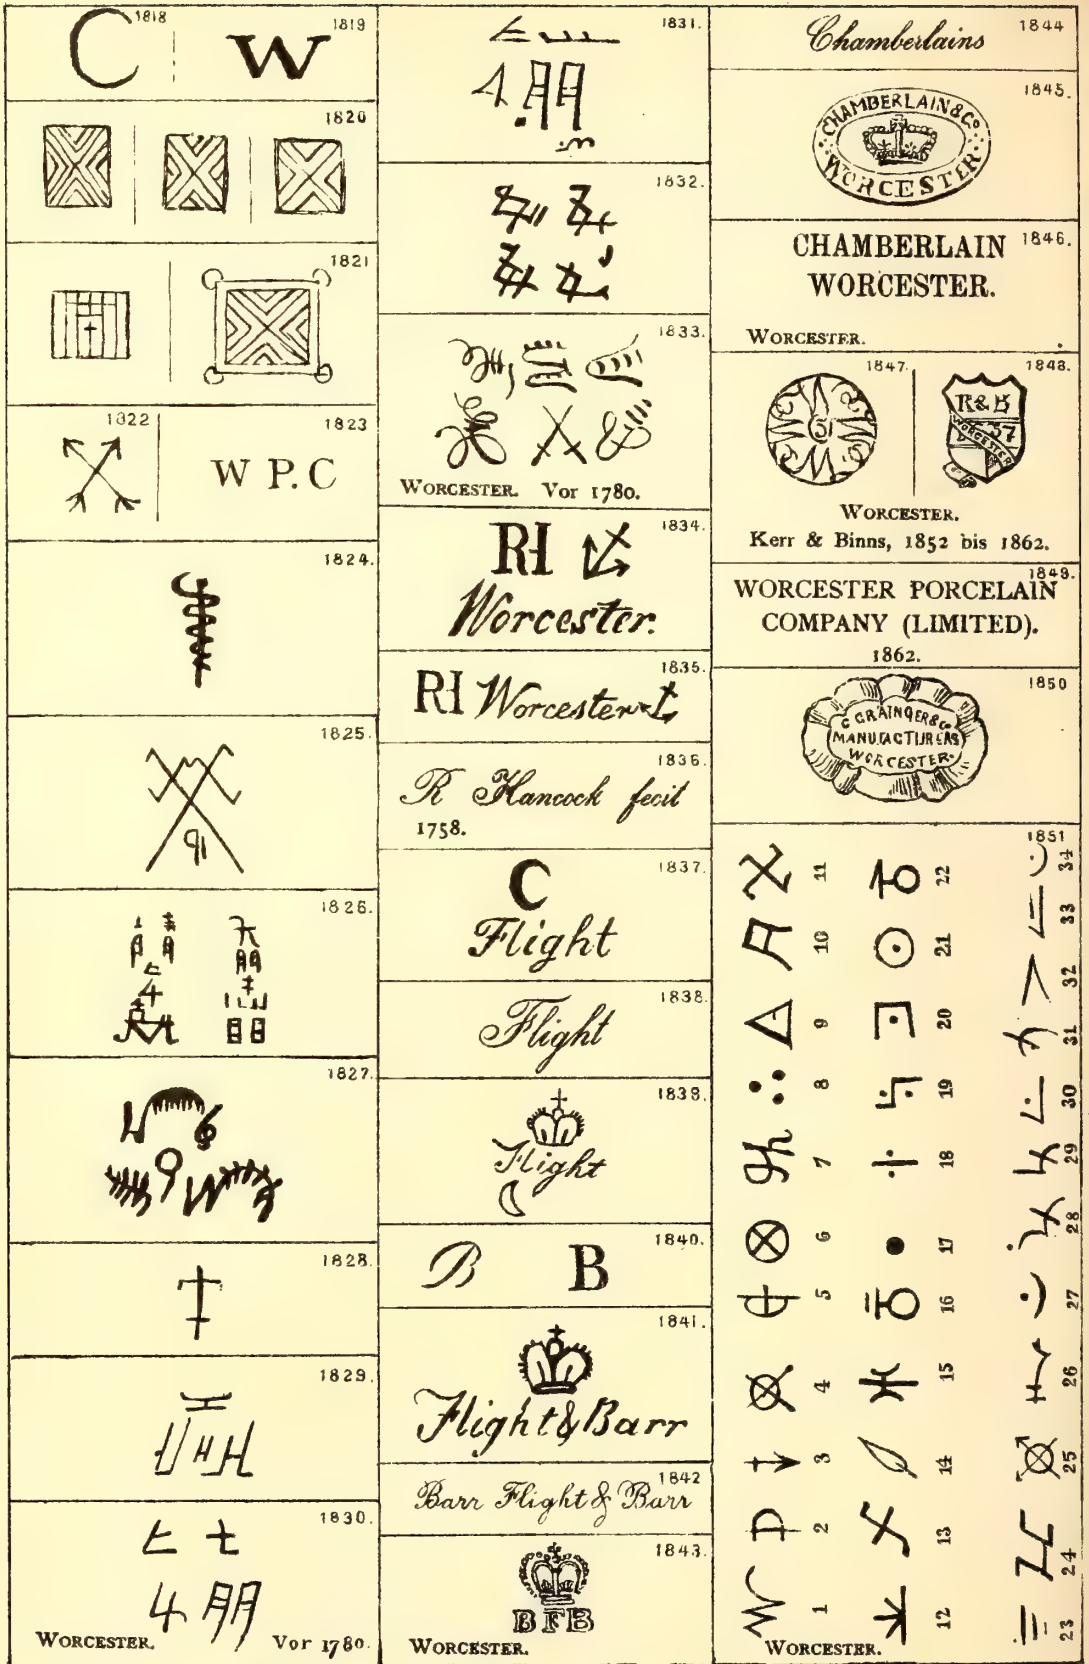 1818
C
1819
W
1820
1821
1822
1823
W P.C
1824.
1825.
91
1826.
1827.
1828.
1829.
1830.
WORCESTER. Vor 1780.
1831.
1832.
1833.
WORCESTER. Vor 1780.
1834.
RH
Worcester.
1835.
RH Worcester
1836.
R Hancock fecit
1758.
1837.
C
Flight
1838.
Flight
1839.
Flight
1840.
B B
1841.
Flight & Barr
1842
Barr Flight & Barr
1843.
B F B
WORCESTER.
1844
Chamberlains
1845.
CHAMBERLAIN & Co
WORCESTER
1846.
CHAMBERLAIN
WORCESTER.
WORCESTER.
1847.
1848.
R & B
WORCESTER
57
WORCESTER.
Kerr & Binns, 1852 bis 1862.
1849.
WORCESTER PORCELAIN
COMPANY (LIMITED).
1862.
1850
G GRAINGER & Co
MANUFACTURERS
WORCESTER.
1851
1 2 3 4 5 6 7 8 9 10 11
12 13 14 15 16 17 18 19 20 21 22
23 24 25 26 27 28 29 30 31 32 33 34
WORCESTER.